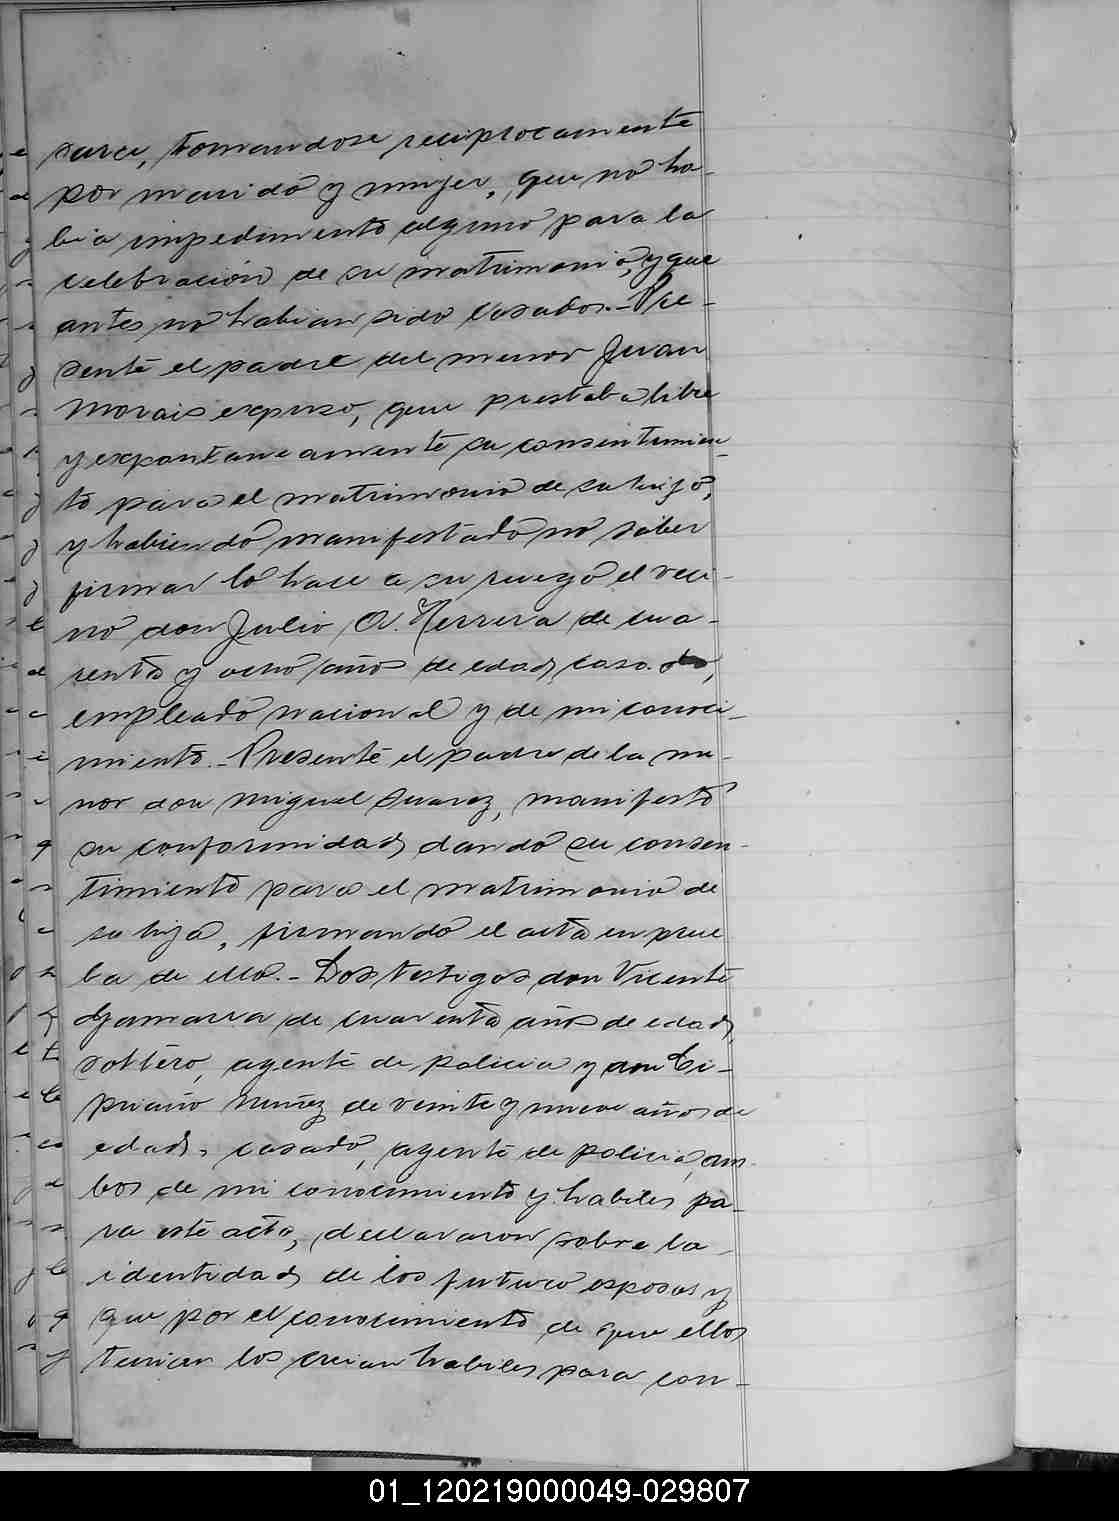 sarce, tomandose reciprocamente
por marido y mujer, que no ha-
bia impedimento alguno para la
celebración de su matrimonio, y que
antes no habian sido casados.- Pre-
sente el padre del menor Juan
Morais expuso, que prestaba libre
y expontaneamente su consentimien-
to para el matrimonio de su hijo,
y habiendo manifestado no saber
firmar lo hace a su ruego el veci-
no don Julio A. Herrera de cua-
renta y ocho años de edad, casado,
empleado nacional y de mi conoci-
miento.- Presente el padre de la me-
nor don Miguel Suarez, manifesto
su conformidad, dando su consen-
timiento para el matrimonio de
su hija, firmando el acta en prue
ba de ello.- Dos testigos don Vicente
Gamarra de cuarenta años de edad,
soltero, agente de policia y don Ci-
priano Nuñez de veinte y nueve años de
edad, casado, agente de policia, am-
bos de mi conocimiento y habiles pa-
ra este acto, declararon sobre la
identidad de los futuro esposos y
que por el conocimiento de que ellos
tenian los creian habiles para con-
01_120219000049-029807